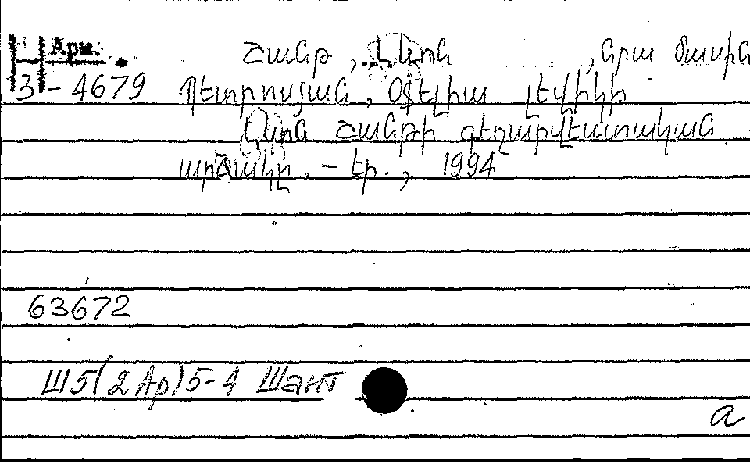 Арм. Շանթ, Լևոն , նրա մասին
3-4679 Պետրոսյան, Օֆելիա Լևիկի
Լևոն Շանթի գեղարվեստական
արձակը. – Եր., 1994
63672
Ш5(2Ар)5-4 Шант
а